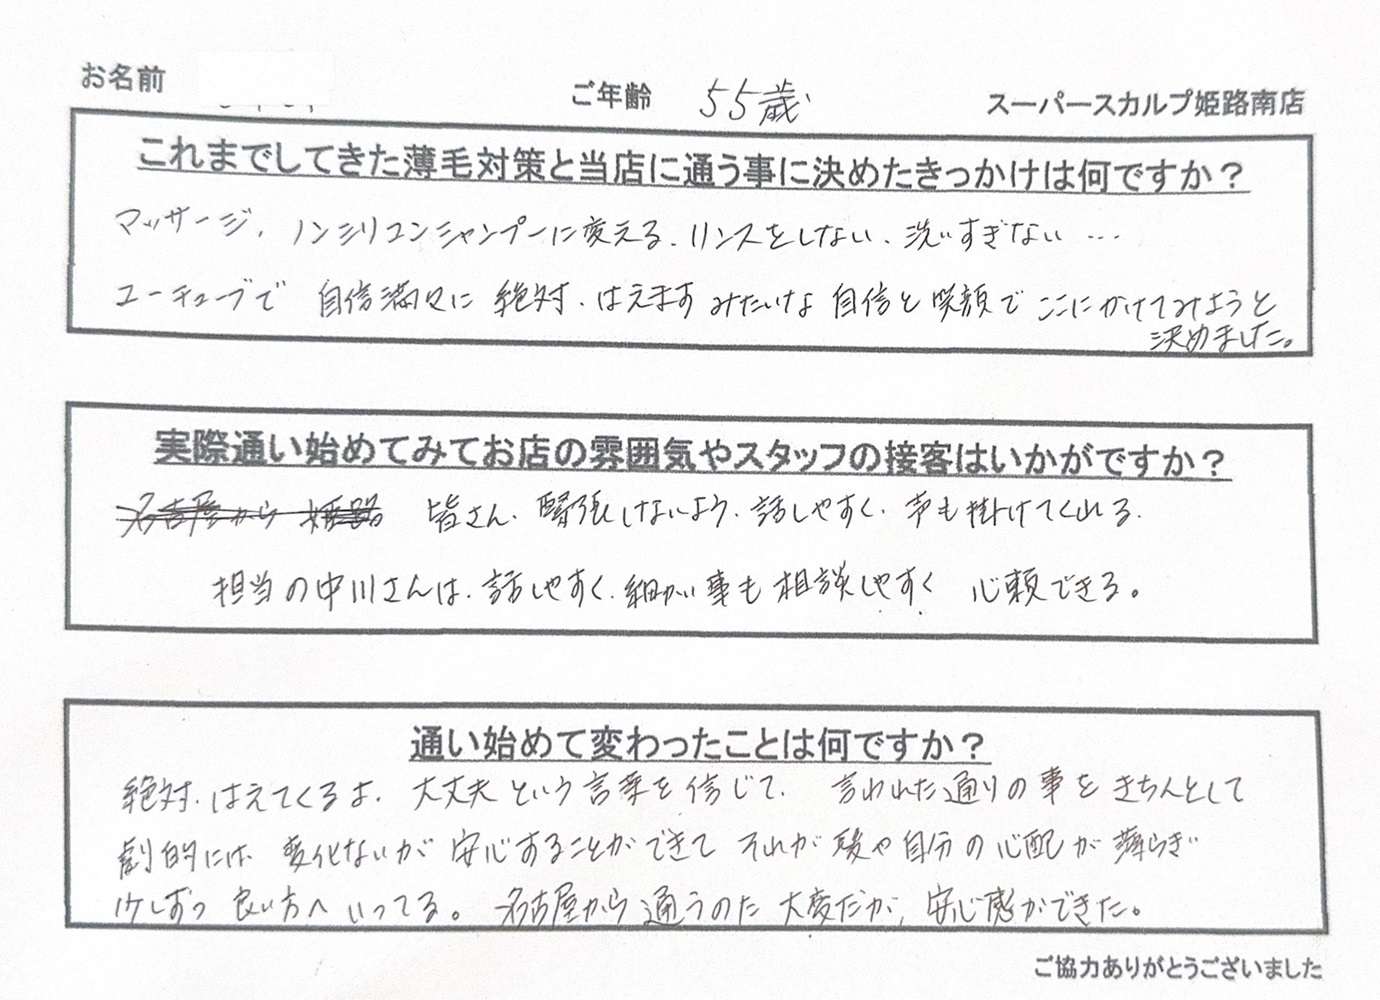 お名前
ご年齢 55歳
スーパースカルプ姫路南店
これまでしてきた薄毛対策と当店に通う事に決めたきっかけは何ですか？
マッサージ、ノンシリコンシャンプーに変える、リンスをしない、洗いすぎない…
ユーチューブで 自信満足に 絶対、はえます みたいな 自信と 笑顔で ここにかけてみようと
決めました。
実際通い始めてみてお店の雰囲気やスタッフの接客はいかがですか？
名古屋から 姫路 皆さん、緊張しないよう、話しやすく、声も掛けてくれる、
担当の中川さんは、話しやすく、細かい事も相談しやすく 心頼できる。
通い始めて変わったことは何ですか？
絶対、はえてくるよ、大丈夫という言葉を信じて、言われた通りの事をきちんとして
劇的には、変化ないが 安心することができて それが 髪や自分の心配が薄らぎ
少しずつ 良い方へ いってる。名古屋から通うのた 大変だが、安心感ができた。
ご協力ありがとうございました